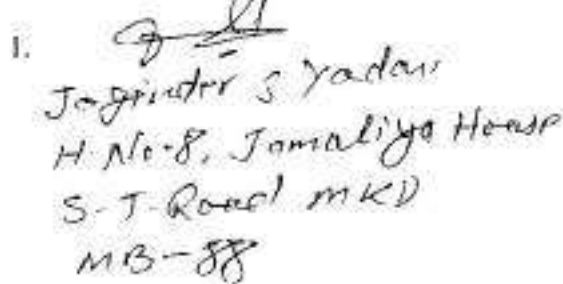 1.
Joginder S Yadav
H. No-8, Jamaliya House
S-T-Road MKD
MB-88